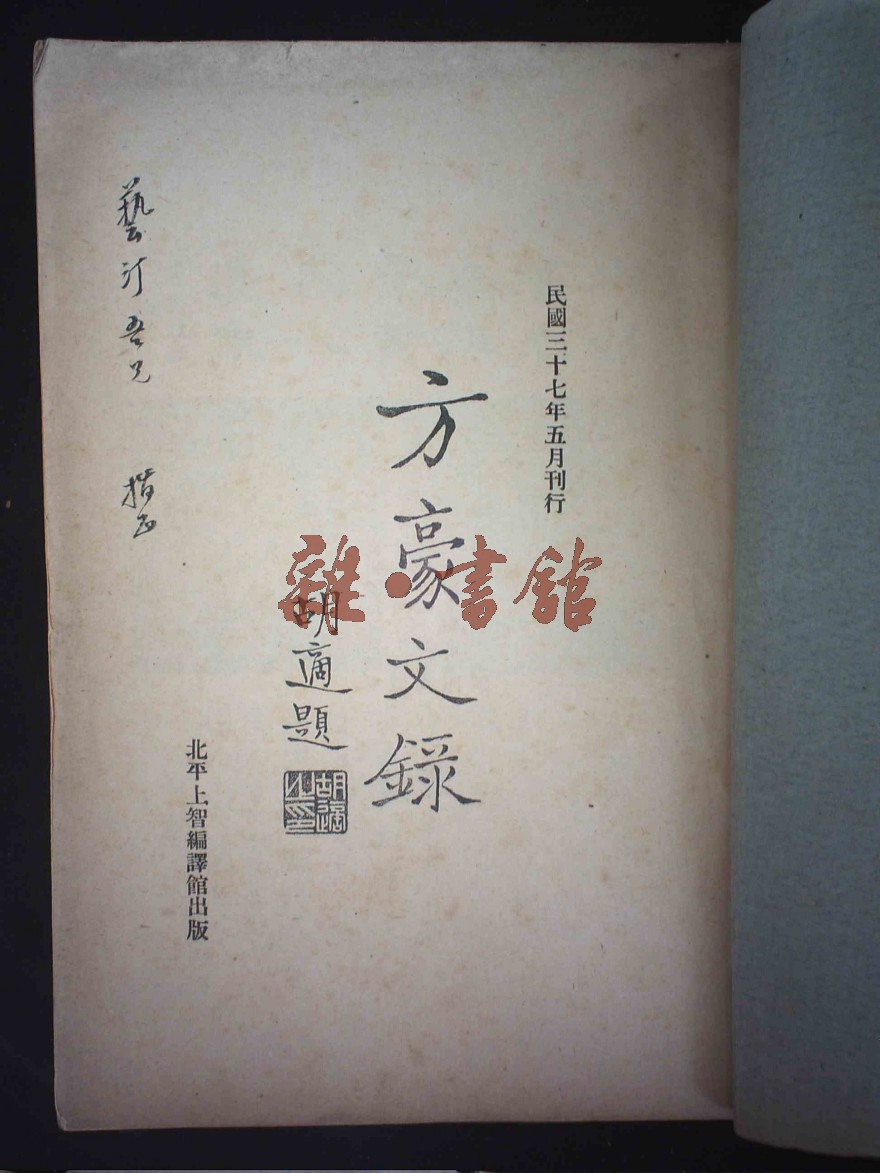 民國三十七年五月刊行
方豪文錄
胡適題
胡適之印
北平上智編譯館出版
藝汀吾兄 指正
雜·書館